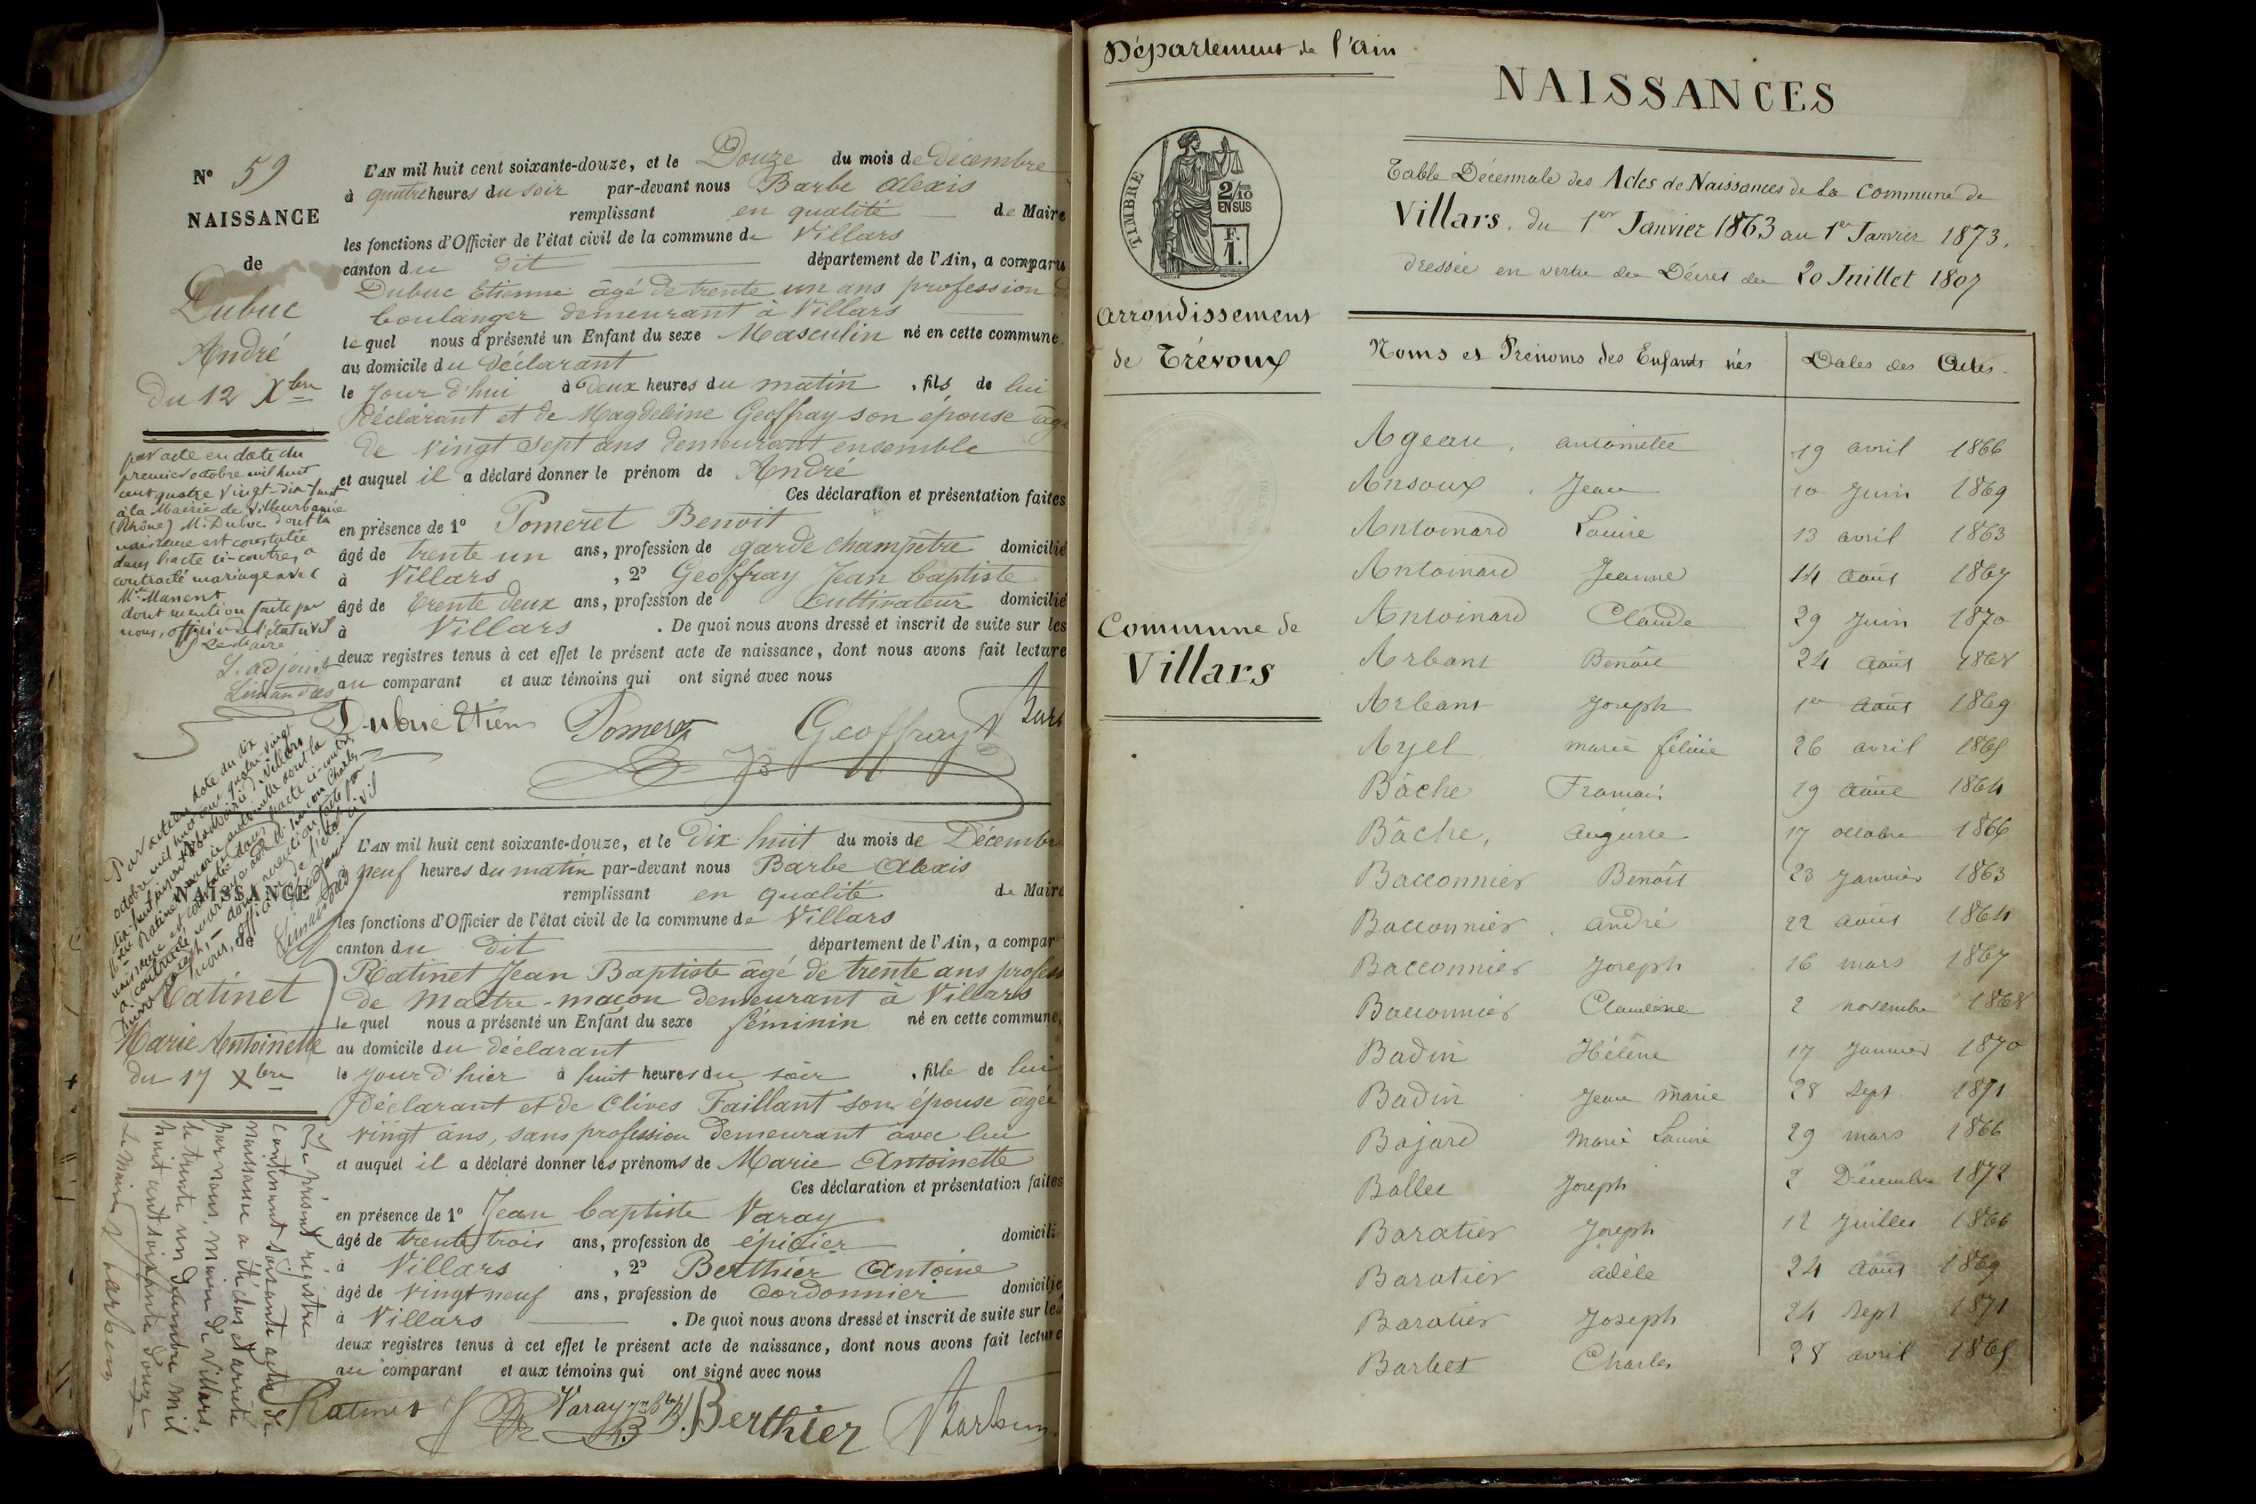 N° 59
NAISSANCE
de
Dubuc
André
Du 12 Xbre
L'AN mil huit cent soixante-douze, et le Douze du mois de décembre
à quatre heures du soir par-devant nous Barbe Alexis
remplissant en qualité de Maire
les fonctions d'Officier de l'état civil de la commune de Villars
canton du dit département de l'Ain, a comparu
Dubuc Etienne âgé de trente un ans profession de
boulanger demeurant à Villars
lequel nous a présenté un Enfant du sexe Masculin né en cette commune,
au domicile du déclarant
le jour d'hui à deux heures du matin, fils de lui
Déclarant et de Magdeleine Geoffray son épouse âgé
de vingt sept ans demeurant ensemble
et auquel il a déclaré donner le prénom de André
Ces déclaration et présentation faites
en présence de 1° Pomeret Benoit
âgé de trente un ans, profession de garde champêtre domicilié
à Villars, 2° Geoffray Jean baptiste
âgé de trente deux ans, profession de cultivateur domicilié
à Villars. De quoi nous avons dressé et inscrit de suite sur les
deux registres tenus à cet effet le présent acte de naissance, dont nous avons fait lecture
au comparant et aux témoins qui ont signé avec nous
Dubuc Etien Pomeret Geoffray
par acte en date du
premier octobre mil huit
cent quatre vingt-dix-huit
à la Mairie de Villeurbanne
(Rhône) M. Dubuc dont la
naissance est constatée
dans l'acte ci-contre, a
contracté mariage avec
Mlle Manent
dont mention faite par
nous, officier de l'état civil
Le Maire
L. adjoint
NAISSANCE
de
Ratinet
Marie Antoinette
du 17 Xbre
L'AN mil huit cent soixante-douze, et le dix huit du mois de Décembre
à neuf heures du matin par-devant nous Barbe Alexis
remplissant en qualité de Maire
les fonctions d'Officier de l'état civil de la commune de Villars
canton du dit département de l'Ain, a compar
Ratinet Jean Baptiste âgé de trente ans profess
de Maître-maçon demeurant à Villars
lequel nous a présenté un Enfant du sexe féminin né en cette commune,
au domicile du déclarant
le jour d'hier à huit heures du soir, fille de lui
Déclarant et de Clives Faillant son épouse âgée
vingt ans, sans profession demeurant avec lui
et auquel il a déclaré donner les prénoms de Marie Antoinette
Ces déclaration et présentation faites
en présence de 1° Jean baptiste Varay
âgé de trente trois ans, profession de épicier domicili
à Villars, 2° Berthier Antoine
âgé de vingt neuf ans, profession de Cordonnier domicilié
à Villars. De quoi nous avons dressé et inscrit de suite sur les
deux registres tenus à cet effet le présent acte de naissance, dont nous avons fait lecture
au comparant et aux témoins qui ont signé avec nous
Ratinet Varay Berthier
Le présent registre
contenant soixante actes de
naissance a été clos et arrêté
par nous, Maire de Villars,
le trente un Décembre mil
huit cent soixante douze
Le Maire
Département de l'Ain
TIMBRE
2/10
EN SUS
F.
1.
Arrondissement
de Trévoux
Commune de
Villars
NAISSANCES
Table Décennale des Actes de Naissances de la Commune de
Villars, du 1er Janvier 1863 au 1er Janvier 1873,
dressée en vertu du Décret du 20 Juillet 1807
Noms et Prénoms des Enfants nés Dates des Actes
Ageau, antoinette 19 avril 1866
Ansoux, Jean 10 Juin 1869
Antoinard Louise 13 avril 1863
Antoinard Jeanne 14 août 1867
Antoinard Claude 29 Juin 1870
Arbant Benoît 24 août 1868
Arbant Joseph 1er août 1869
Ayel marie félicie 26 avril 1865
Bâche François 19 août 1864
Bâche, auguste 17 octobre 1866
Bacconnier Benoît 23 Janvier 1863
Bacconnier, andré 22 août 1864
Bacconnier Joseph 16 mars 1867
Bacconnier Claudine 2 novembre 1868
Badin Hélène 17 Janvier 1870
Badin Jean marie 28 Sept 1871
Bajard Marie Louise 29 mars 1866
Ballet Joseph 2 Décembre 1872
Baratier Joseph 12 Juillet 1866
Baratier adèle 24 août 1869
Baratier Joseph 24 Sept 1871
Barbet Charles 28 avril 1865